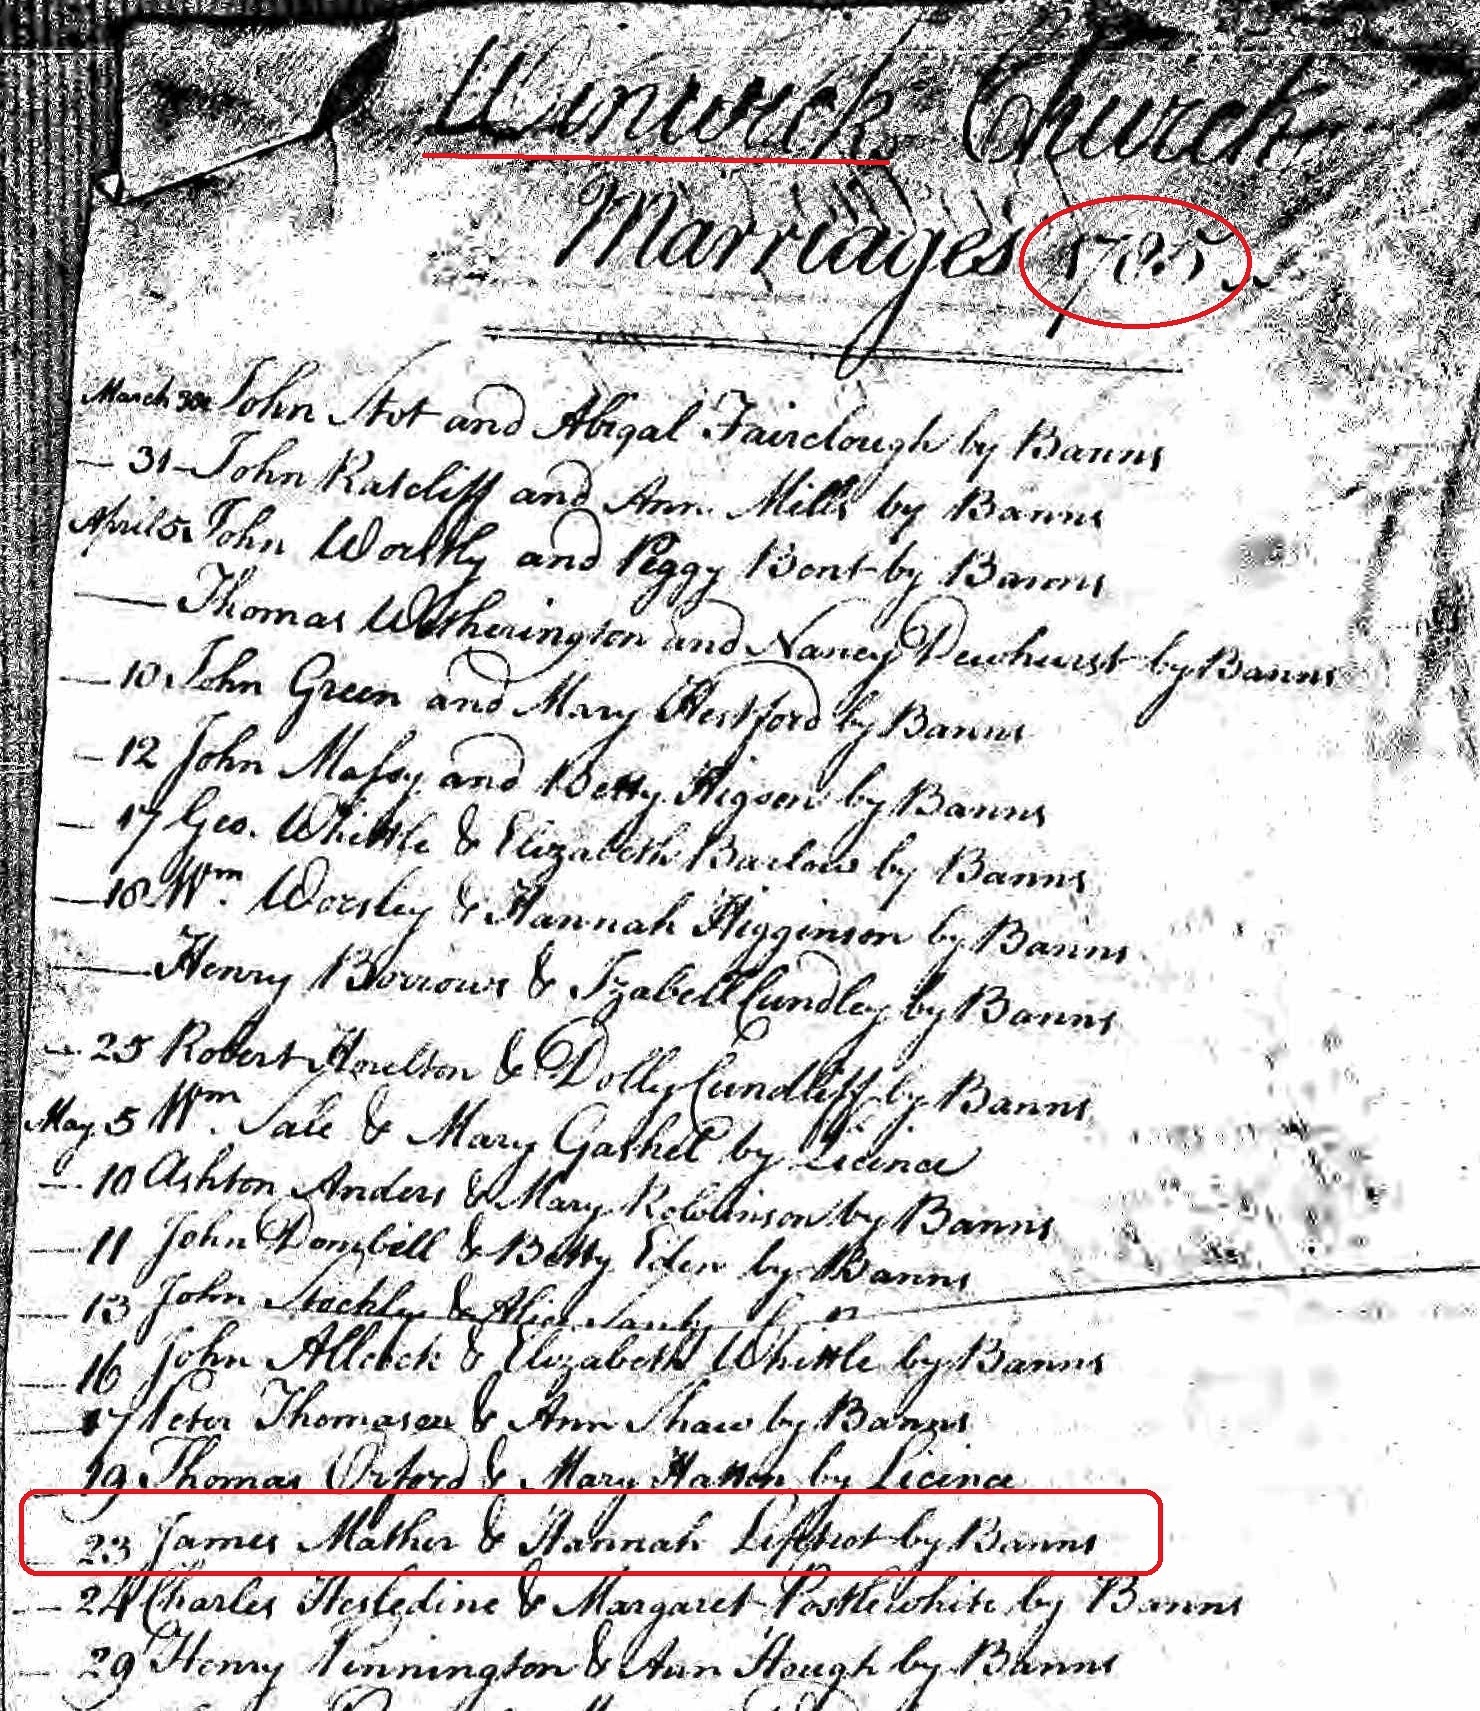 Winwick Church
Marriages 1785
March 30 John Stot and Abigal Fairclough by Banns
31 John Ratcliff and Ann Mills by Banns
April 5 John Worsley and Peggy Bent by Banns
Thomas Wetherington and Nancy Dewhurst by Banns
10 John Green and Mary Hertford by Banns
12 John Massy and Betty Higson by Banns
17 Geo. Whittle & Elizabeth Barlow by Banns
18 Wm. Worsley & Hannah Higginson by Banns
Henry Borrows & Izabell Cundley by Banns
25 Robert Houlton & Dolly Cundliff by Banns
May 5 Wm. Sale & Mary Gaskel by Licince
10 Ashton Anders & Mary Robinson by Banns
11 John Dombill & Betty Eden by Banns
13 John Stockley & Alice
16 John Allcock & Elizabeth Whittle by Banns
17 Peter Thomason & Ann Shaw by Banns
19 Thomas Orford & Mary Hatton by Licince
23 James Mather & Hannah by Banns
24 Charles Hesledine & Margaret Postlewhite by Banns
29 Henry Pinnington & Ann Hough by Banns